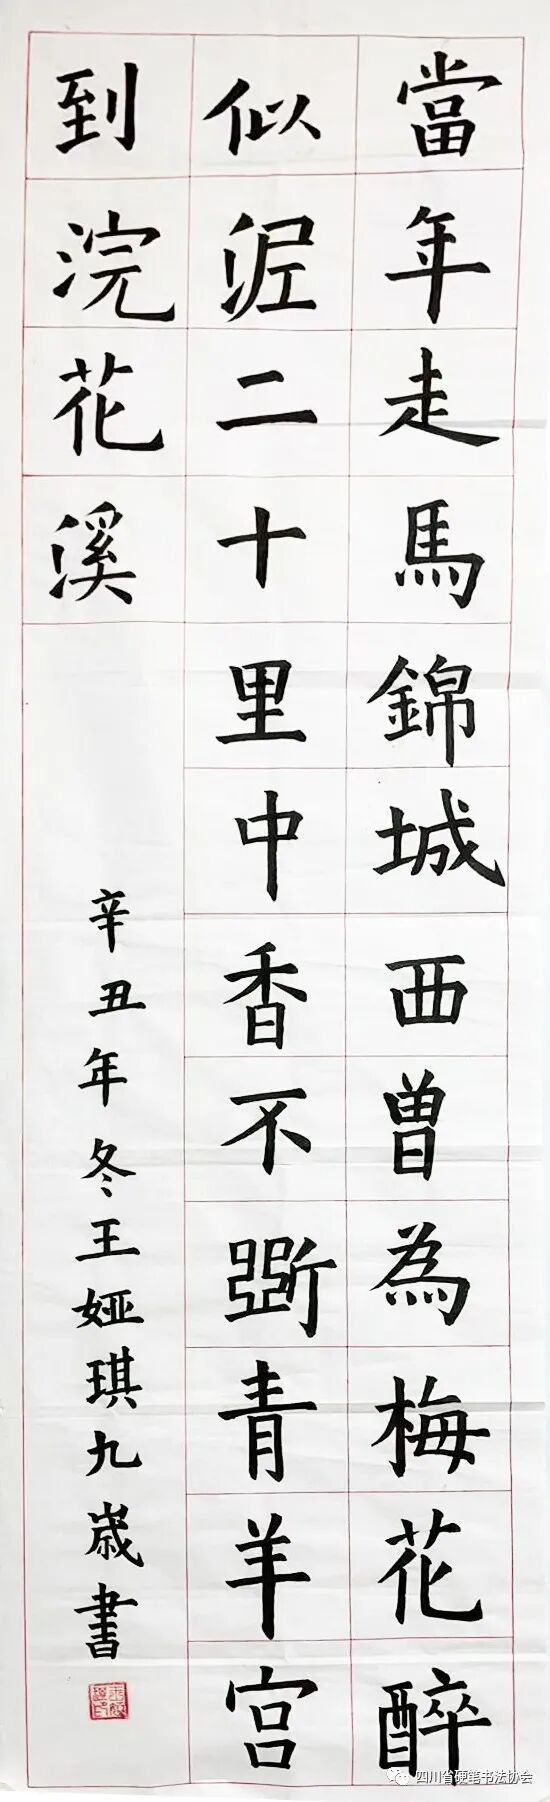 當年走馬錦城西曾為梅花醉
似泥二十里中香不斷青羊宮
到浣花溪
辛丑年冬王娅琪九歲書
四川省硬笔书法协会